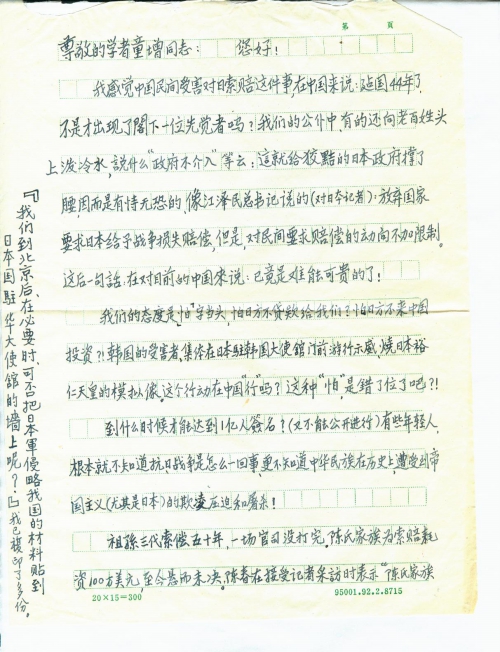 第 頁
尊敬的学者童增同志： 您好！
我感觉中国民间受害对日索赔这件事,在中国来说：站国44年了,
不是才出现了閣下一位先觉者吗？我们的公仆中,有的还向老百姓头
上泼冷水,説什么“政府不介入”等云：這就给狡黠的日本政府撑了
腰,因而是有恃无恐的,像江泽民总书记说的(对日本记者)：放弃国家
要求日本给予战争损失赔偿,但是,对民間要求赔偿的动向不加限制。
这后一句話,在对目前的中国来说：已竟是难能可贵的了！
我们的态度是“怕”字当头,怕日方不贷款给我们？怕日方不来中国
投资？！韩国的受害者,集体在日本駐韩国大使館门前游行示威,燒日本裕
仁天皇的模拟像。这个行动在中国“行”吗？这种“怕”是错了位了吧？！
到什么时候才能达到1亿人簽名？(又不能公开进行)有些年轻人,
根本就不知道抗日战争是怎么一回事,更不知道中华民族在历史上,遭受到帝
国主义(尤其是日本)的欺凌压迫和屠杀！
祖孫三代索偿五十年,一场官司没打完。陈氏家族为索赔耗
资100万美元,至今悬而未决。陈春在接受记者采訪时表示“陈氏家族
20×15=300
95001.92.2.8715
『我们到北京后、在必要时,可否把日本軍侵略我国的材料贴到
日本国駐华大使館的墙上呢？』我已複印了多份。